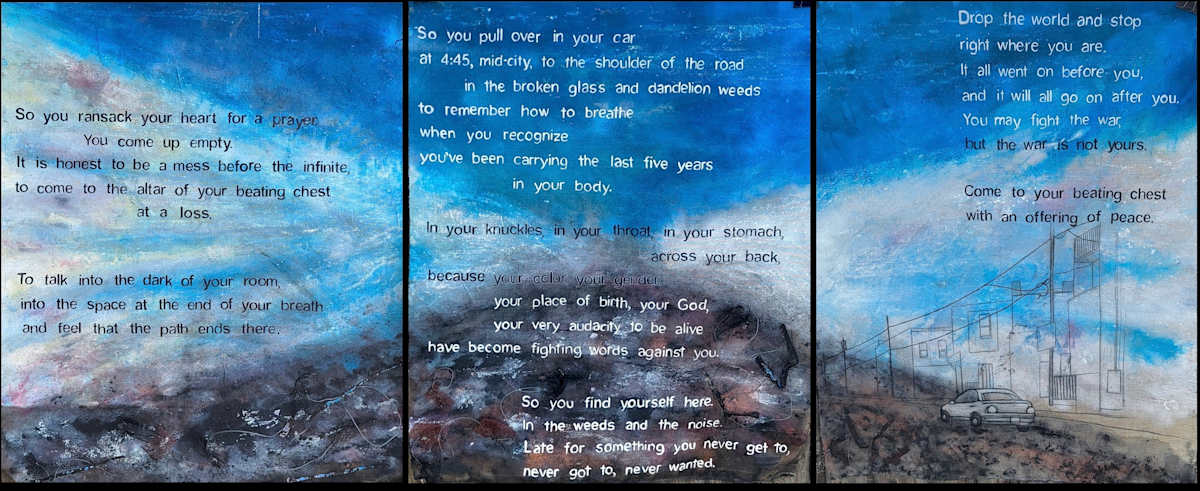 So you ransack your heart for a prayer.
You come up empty.
It is honest to be a mess before the infinite,
to come to the altar of your beating chest
at a loss.
To talk into the dark of your room,
into the space at the end of your breath
and feel that the path ends there.
So you pull over in your car
at 4:45, mid-city, to the shoulder of the road
in the broken glass and dandelion weeds
to remember how to breathe
when you recognize
you've been carrying the last five years
in your body.
In your knuckles in your throat, in your stomach,
across your back,
because your color your gender
your place of birth, your God,
your very audacity to be alive
have become fighting words against you.
So you find yourself here.
In the weeds and the noise.
Late for something you never get to,
never got to, never wanted.
Drop the world and stop
right where you are.
It all went on before you,
and it will all go on after you.
You may fight the war,
but the war is not yours.
Come to your beating chest
with an offering of peace.